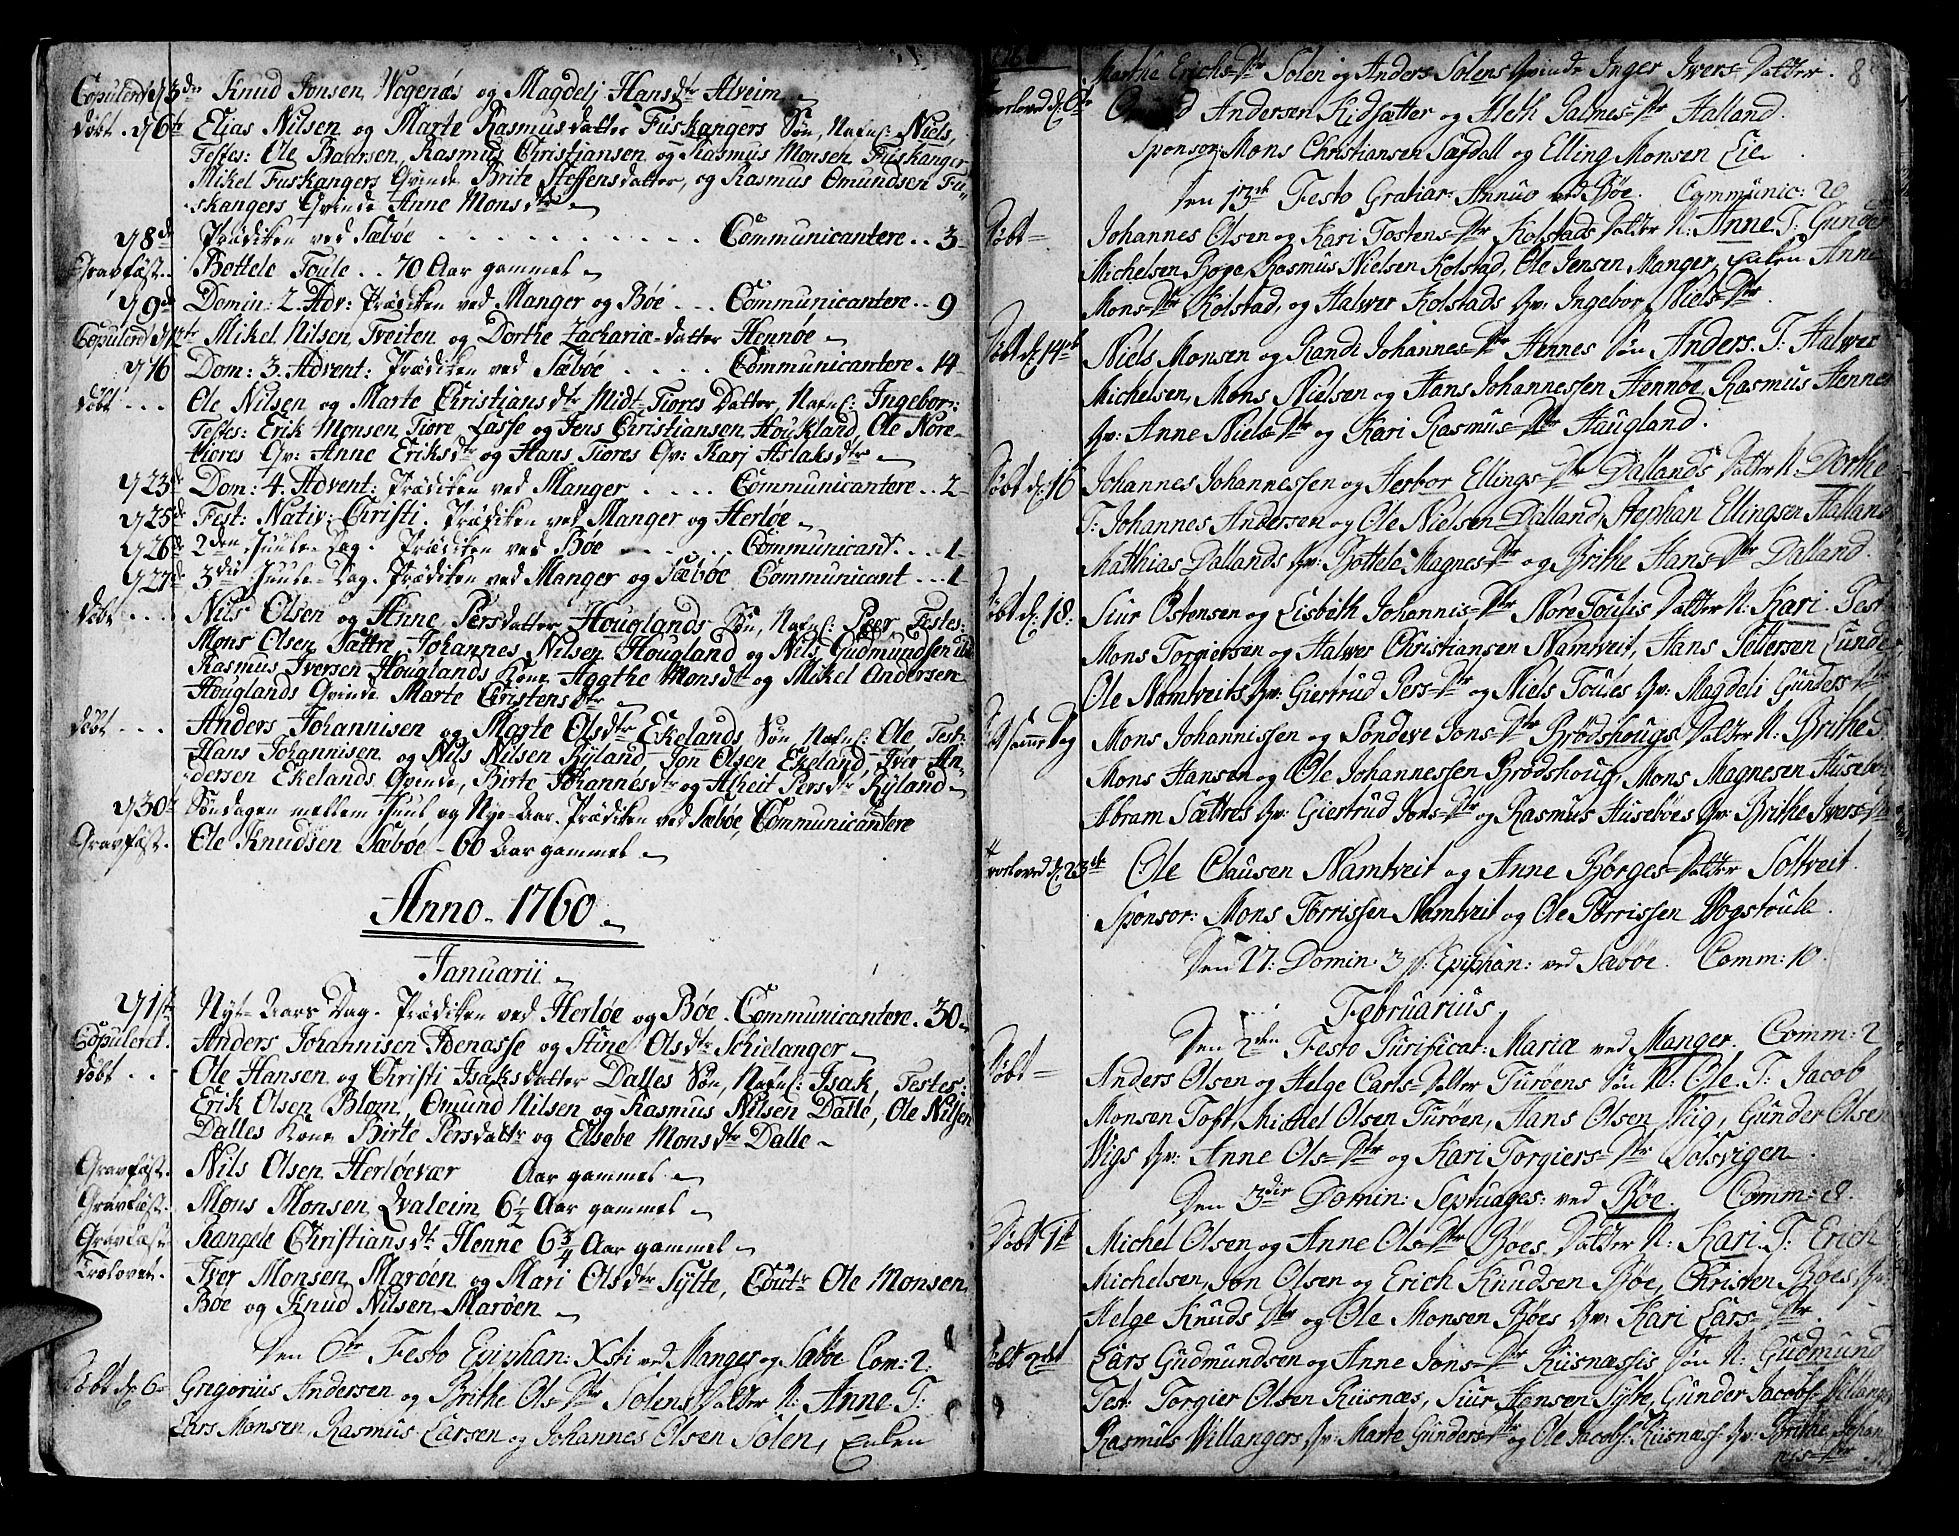 Copulerd d 3de Knud Jonsen Wogenæs og Magdelj Hansdtr Alveim
døbt. d 6te Eljas Nilsen og Marte Rasmusdatter Fuskangers Søn, Nafnl: Niels,
Testes: Ole Baarsen, Rasmus Christjansen og Rasmus Monsen Fuskanger
Mikel Fuskangers Qvinde Brite Steffensdatter, og Rasmus Omundsen Fu-
skangers Qvinde Anne Monsdtr
d 8de Prædiken ved Sæbøe Communicantere . . 3
Gravfæst. Bottele Toule . . 70 Aar gammel
d 9de Domin: 2. Adv: Prædiken ved Manger og Bøe . . Communicantere . . 9
Copulerd d 12te Mikel Nilsen Tveiten og Dorthe Zachariæ-datter Hennøe
d 16 Dom: 3. Advent: Prædiken ved Sæbøe . . . . Communicantere . 14
døbt . . . Ole Nilsen og Marte Christiansdtr Midt-Tiøres Datter, Nafnl: Ingebor:
Testes: Erik Monsen Tiøre Lasse og Jens Christiansen Houkland, Ole Nore-
tiøres Qv: Anne Eriksdtr og Hans Tiøres Qv: Karj Aslaksdtr
d 23de Dom: 4. Advent: Prædiken ved Manger . . . . Communicantere . . 2
d 25de Fest: Nativ: Christi. Prædiken ved Manger og Herløe
d 26de 2den Juule-Dag. Prædiken ved Bøe Communicant. . . . 1
d 27de 3die Juule-Dag. Prædiken ved Manger og Sæbøe Communicant . . . 1
døbt . . . Nils Olsen og Anne Persdatter Houglands Søn, Nafnl: Peer, Testes:
Mons Olsen Sættre, Johannes Nilsen Hougland og Nils Gudmundsen
Rasmus Iversen Houglands Kone Aggthe Monsdtr og Mikel Andersen
Houglands Qvinde Marte Christensdtr
døbt . . . Anders Johannisen og Marte Olsdtr Ekelands Søn Nafnl: Ole Test:
Hans Johannisen og Nils Nilsen Ryland, Jon Olsen Ekeland, Iver An-
dersen Ekelands Qvinde, Birte Johannesdtr og Alheit Persdtr Ryland
d 30te Søndagen mellem Juul og Nye-Aar. Prædiken ved Sæbøe, Communicantere
Gravfæst. Ole Knudsen Sæbøe - 60 Aar gammel
Anno 1760
Januarii
d 1ste Nyt-Aars Dag. Prædiken ved Herløe og Bøe. Communicantere. 30
Copuleret. Anders Johannisen Adenasse og Stine Olsdtr Schielanger
døbt . . Ole Hansen og Christi Isaksdatter Dalles Søn, Nafnl: Isak, Testes:
Erik Olsen Blom, Omund Nilsen og Rasmus Nilsen Dalle, Ole Nilsen
Dalles Kone Birte Persdattr og Elsebe Monsdtr Dalle
Gravfæst. Nils Olsen Herløevær Aar gammel
Gravfæst. Mons Monsen Qvaleim 6½ Aar gammel
Gravfæst. Rangele Christiansdtr Henne 6¾ Aar gammel
Trolovet. Iver Monsen Marøen og Mari Olsdtr Sylte, Cout: Ole Monsen
Bøe og Knud Nilsen Marøen
Den 6te Festo Epiphan: Xsti ved Manger og Sæbøe Com: 2.
Døbt d. 6 Gregorius Andersen og Brithe Ols-Dtr Solens Datter N: Anne T:
Lars Monsen, Rasmus Larsen og Johannes Olsen Solen, Enken
8
Marthe Erichs-Dtr Solen og Anders Solens Qvinde Inger Ivers-Datter.
Andersen Kidsætter og Aleth Galmes-Dtr Halland.
Sponsor: Mons Christiansen Sægdall og Elling Monsen Eie
Den 13de Festo Gratiar: Annuo ved Bøe. Communic: 20
Døbt Johannes Olsen og Kari Tostens-Dtr Kolstads Datter N: Anne T: Gunder
Michelsen Bøpe, Rasmus Nielsen Kolstad, Ole Jensen Manger, Enken Anne
Mons-Dtr Kolstad, og Halver Kolstads Qv: Ingebor Niels-Dtr.
Døbt d. 14de Niels Monsen og Randi Johannes-Dtr Hennes Søn Anders. T: Halver
Michelsen, Mons Nielsen og Hans Johannessen Hennøe, Rasmus Hennes
Qv: Anne Niels-Dtr og Kari Rasmus-Dtr Haugland.
Døbt d. 16 Johannes Johannessen og Herbor Ellings-Dtr Dallands Datter N: Dorthe
T: Johannes Andersen og Ole Nielsen Dalland, Stephan Ellingsen Halland
Matthias Dallands Qv: Bottele Magnes-Dtr og Brithe Hans-Dtr Dalland.
Døbt d. 18. Siur Ostensen og Lisbeth Johannis-Dtr Nore Toulis Datter N: Kari. Test:
Mons Torgiersen og Halver Christiansen Namtveit, Hans Pettersen Lunde
Ole Namtveits Qv: Giertrud Pers-Dtr og Niels Toules Qv: Magdeli Gunders-Dtr
Døbt samme Dag Mons Johannissen og Søndeve Jons-Dtr Brødshougs Datter N: Brithe
Mons Hansen og Ole Johannessen Brødshoug, Mons Magnesen Husebøe
Abram Sættres Qv: Giertrud Jons-Dtr og Rasmus Husebøes Qv: Brithe Ivers-Dtr
Trolovede d. 23de Ole Clausen Namtveit og Anne Børges-Datter Soltveit.
Sponsor: Mons Torrissen Namtveit og Ole Torrissen Vogstoule.
Den 27: Domin: 3 p: Epiphan: ved Sæbøe. Comm: 10.
Februarius
Den 2den Festo Purificat: Mariæ ved Manger. Comm: 2
Døbt Anders Olsen og Helge Carls-Datter Turøens Søn N: Ole. T: Jacob
Monsen Toft, Michel Olsen Turøen, Hans Olsen Viig, Gunder Olsen
Wigs Qv: Anne Ols-Dtr og Kari Torgiers-Dtr Solsvigen.
Den 3die Domin: Septuages: ved Bøe. Comm: 8.
Døbt 1st Michel Olsen og Anne Ols-Dtr Bøes Datter N: Kari. T: Erich
Michelsen, Jon Olsen og Erich Knudsen Bøe, Christen Bøes Qv:
Helge Knuds-Dtr og Ole Monsen Bøes Qv: Kari Lars-Dtr.
Døbt 2det Lars Gudmundsen og Anne Jons-Dtr Riisnæssis Søn N: Gudmund
Test: Torgier Olsen Riisnæs, Siur Hansen Sylte, Gunder Jacobs: Villanger
Rasmus Villangers Qv: Marte Gunders-Dtr og Ole Jacobs: Riisnæss: Qv: Brithe Johan
nis-Dtr